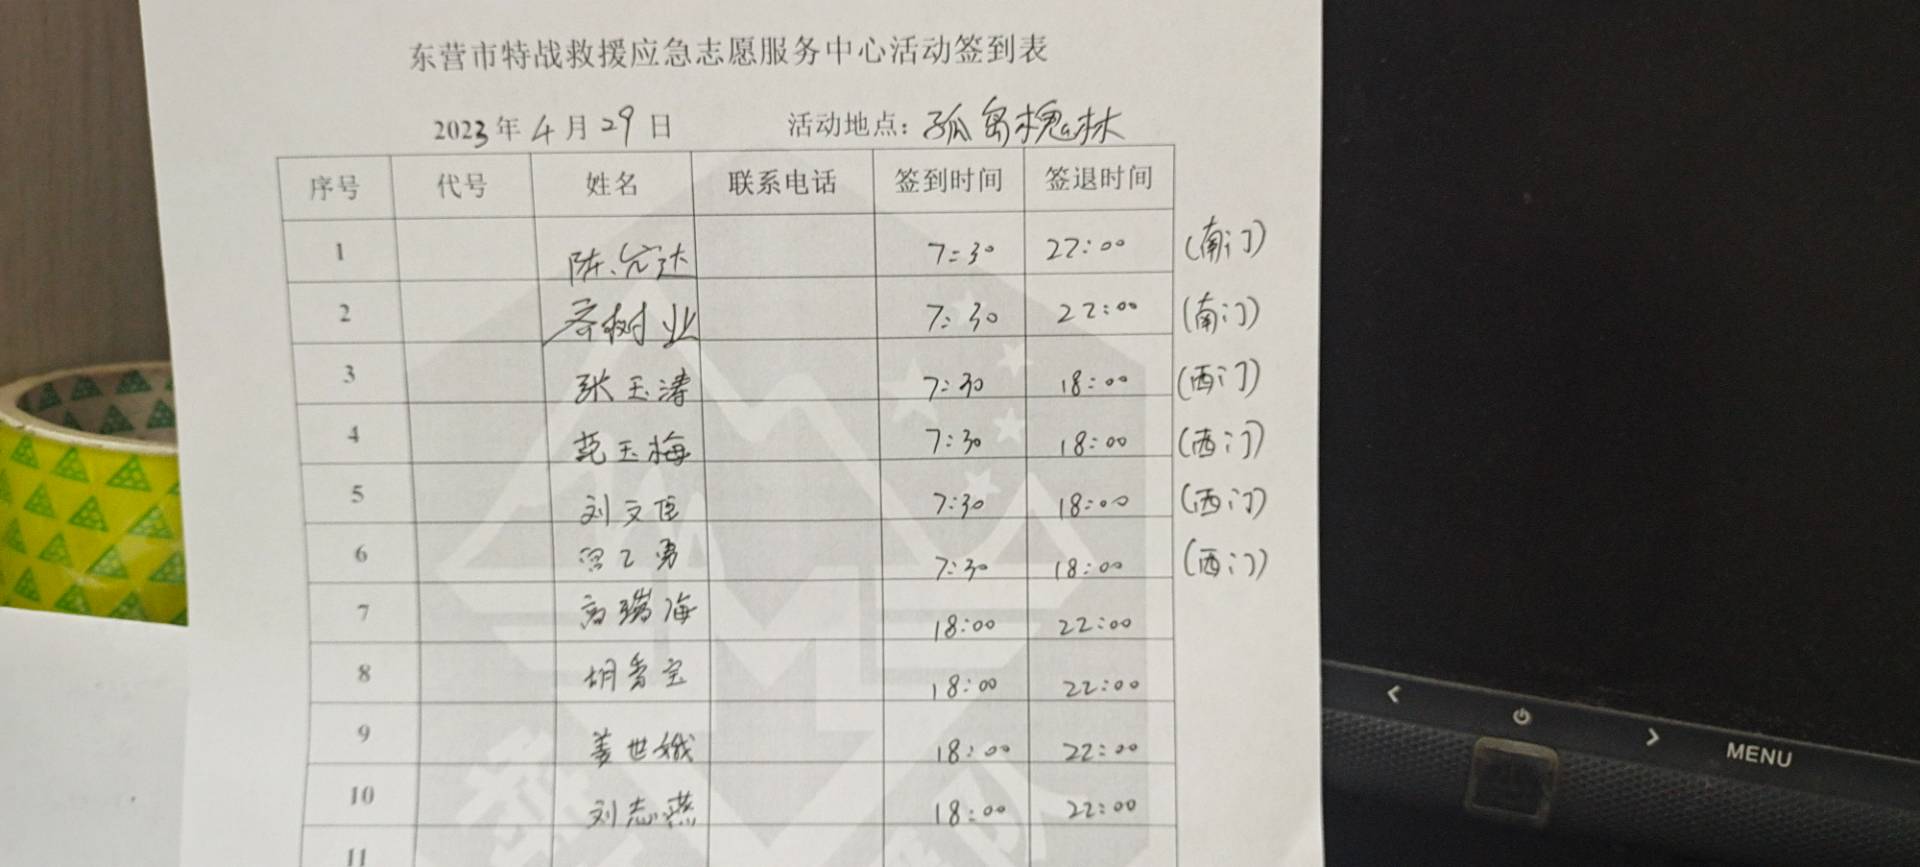 东营市特战救援应急志愿服务中心活动签到表
2023年4月29日 活动地点：孤岛槐林
序号 代号 姓名 联系电话 签到时间 签退时间
1 陈 达 7:30 22:00 (南门)
2 树业 7:30 22:00 (南门)
3 张玉涛 7:30 18:00 (西门)
4 范玉梅 7:30 18:00 (西门)
5 刘文臣 7:30 18:00 (西门)
6 乙勇 7:30 18:00 (西门)
7 高瑞海 18:00 22:00
8 胡秀宝 18:00 22:00
9 姜世娥 18:00 22:00
10 刘志燕 18:00 22:00
11
MENU